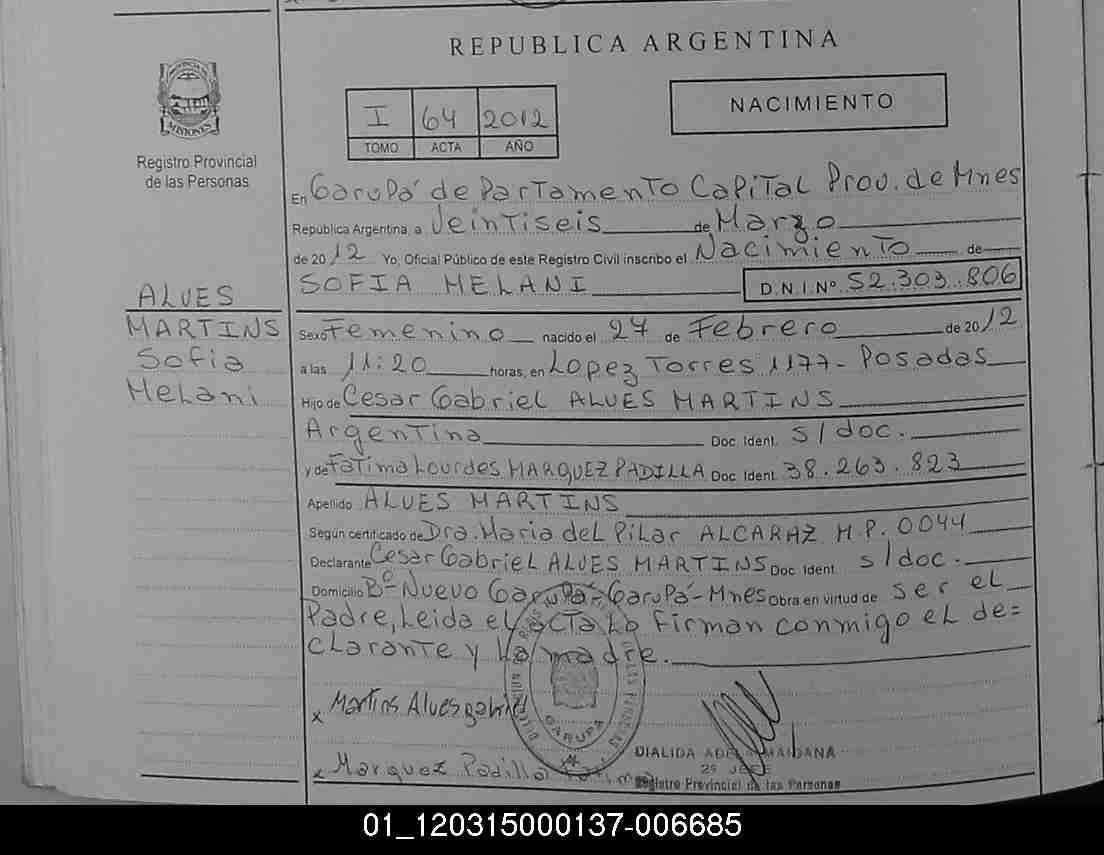 REPUBLICA ARGENTINA
PROVINCIA DE
MISIONES
Registro Provincial
de las Personas
I 64 2012
TOMO ACTA AÑO
NACIMIENTO
En Garupá departamento Capital Prov. de Mnes
Republica Argentina, a Veintiseis de Marzo
de 2012 Yo, Oficial Público de este Registro Civil inscribo el Nacimiento de
SOFIA MELANI D.N.I.Nº 52.303.806
ALVES
MARTINS
Sofia
Melani
Sexo Femenino nacido el 27 de Febrero de 2012
a las 11:20 horas, en Lopez Torres 1177- Posadas
Hijo de Cesar Gabriel ALVES MARTINS
Argentina Doc. Ident. s/doc.
y de Fatima Lourdes MARQUEZ PADILLA Doc. Ident. 38.263.823
Apellido ALVES MARTINS
Según certificado de Dra. Maria del Pilar ALCARAZ M.P. 0044
Declarante Cesar Gabriel ALVES MARTINS Doc. Ident. s/doc.
Domicilio Bº Nuevo Garupá- Garupá-Mnes Obra en virtud de ser el
Padre, Leida el acta lo firman conmigo el de=
clarante y la madre.
x Martins Alves gabriel
GARUPA
DIALIDA MAIDANA
2º JEFE
Registro Provincial de las Personas
x Marquez Padilla Fatima
01_120315000137-006685